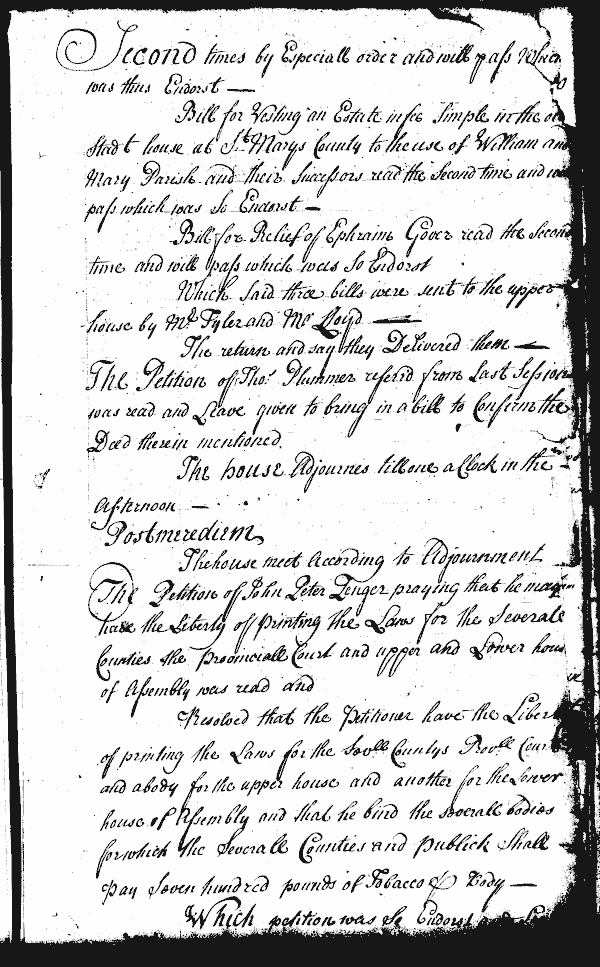 Second times by Especiall order and will pass which
was thus Endorst —
Bill for Vesting an Estate in fee Simple in the old
Stadt house at St Marys County to the use of William and
Mary Parish and their Successors read the Second time and will
pass which was So Endorst —
Bill for Relief of Ephraim Gover read the Second
time and will pass which was So Endorst
Which Said three bills were sent to the upper
house by Mr Tyler and Mr Lloyd —
The return and say they Delivered them —
The Petition of Thos Plummer referd from Last Session
was read and Leave given to bring in a bill to Confirm the
Deed therein mentioned.
The house Adjournes till one a Clock in the
Afternoon —
Postmeredium
The house meet According to Adjournment
The Petition of John Peter Zenger praying that he may
have the Liberty of printing the Laws for the Severall
Counties the Provinciall Court and upper and Lower house
of Assembly was read and
Resolved that the Petitioner have the Liberty
of printing the Laws for the Sevll Countys Provll Court
and a body for the upper house and another for the Lower
house of Assembly and that he bind the severall bodies
for which the Severall Counties and publick Shall
Pay Seven hundred pounds of Tobacco Body —
Which petition was So Endorst and